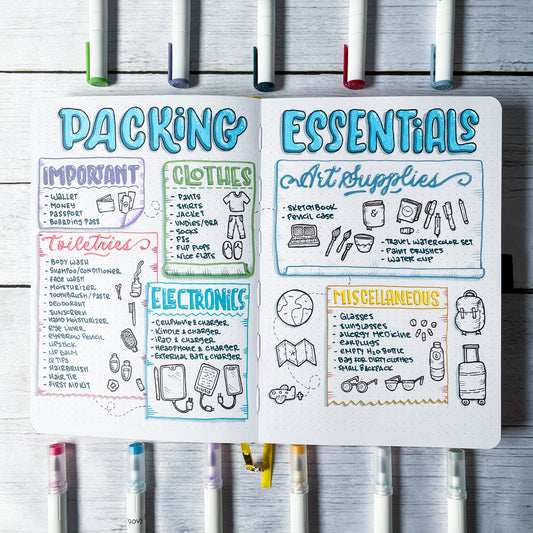 PACKING
ESSENTIALS
IMPORTANT
- WALLET
- MONEY
- PASSPORT
- BOARDING PASS
CLOTHES
- PANTS
- SHIRTS
- JACKET
- UNDIES/BRA
- SOCKS
- PJS
- FLIP FLOPS
- NICE FLATS
Toiletries
- BODY WASH
- SHAMPOO/CONDITIONER
- FACE WASH
- MOISTURIZER
- TOOTHBRUSH/PASTE
- DEODORANT
- SUNSCREEN
- HAND MOISTURIZER
- EYE LINER
- EYEBROW PENCIL
- LIPSTICK
- LIP BALM
- Q TIPS
- HAIRBRUSH
- HAIR TIE
- FIRST AID KIT
ELECTRONICS
- CELLPHONE & CHARGER
- KINDLE & CHARGER
- IPAD & CHARGER
- HEADPHONE & CHARGER
- EXTERNAL BATT & CHARGER
Art Supplies
- SKETCHBOOK
- PENCIL CASE
- TRAVEL WATERCOLOR SET
- PAINT BRUSHES
- WATER CUP
MISCELLANEOUS
- GLASSES
- SUNGLASSES
- ALLERGY MEDICINE
- EARPLUGS
- EMPTY H2O BOTTLE
- BAG FOR DIRTY CLOTHES
- SMALL BACKPACK